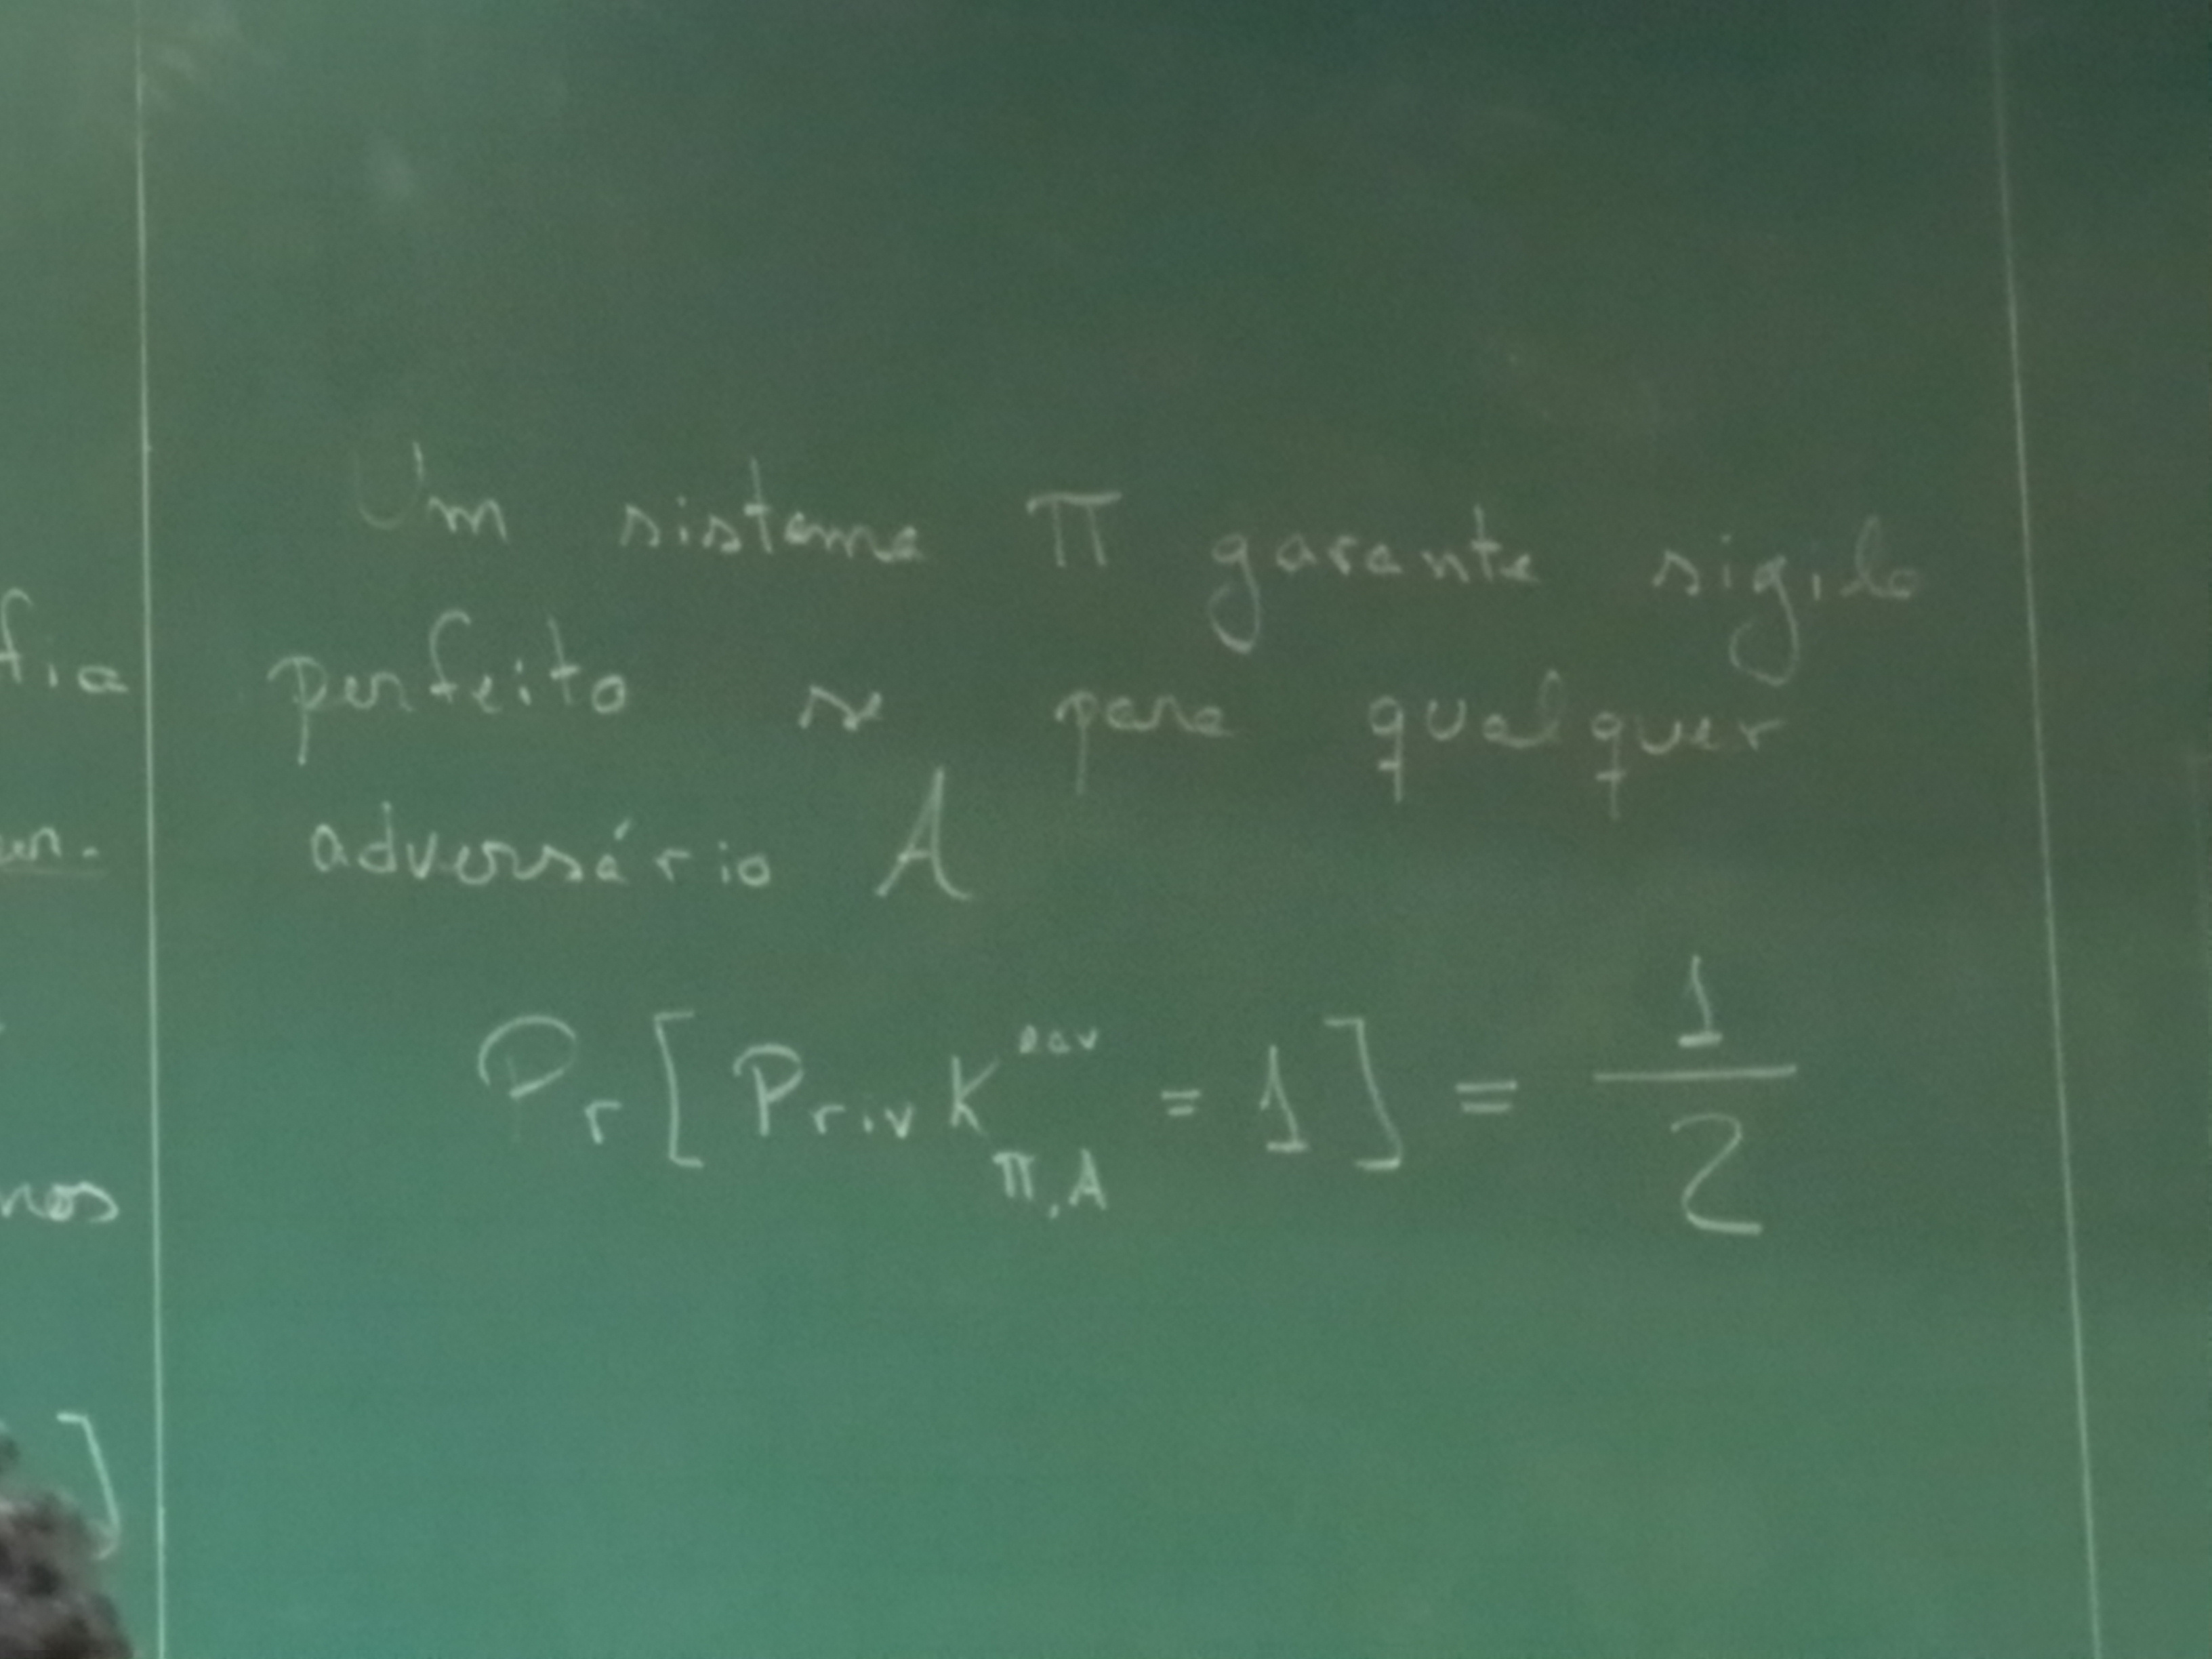 Um sistema Π garante sigilo
perfeito se para qualquer
adversário A
Pr[PrivK^eav_Π,A = 1] = 1/2